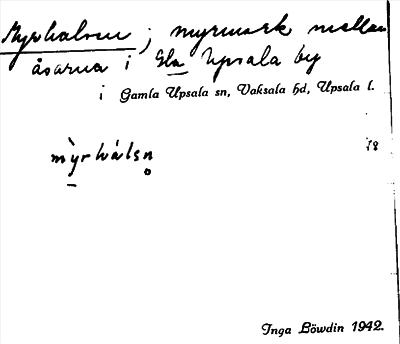 Myrhalsen ; myrmark mellan
åsarna i Gla Upsala by
i Gamla Upsala sn, Vaksala hd, Upsala l.
mỳrhálsn̥
Inga Löwdin 1942.